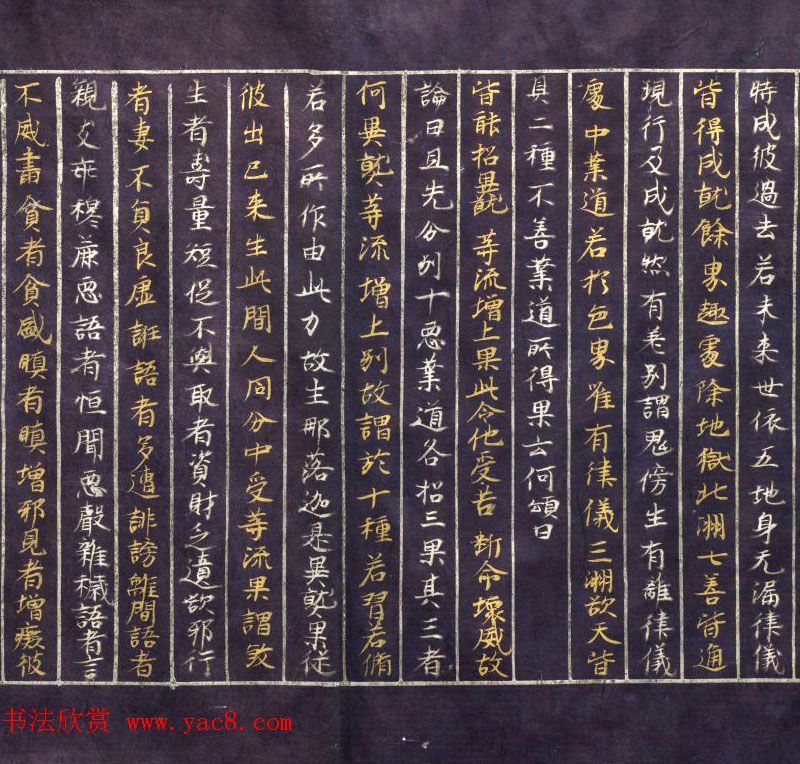 特成彼過去若未来世依五地身无漏律儀
皆得成就餘界趣處除地獄北洲七善皆通
現行及成就然有差别謂鬼傍生有離律儀
處中業道若於色界唯有律儀三洲欲天皆
具二種不善業道所得果云何頌曰
皆能招異熟 等流增上果此令他受苦 斷命壞威故
論曰且先分别十惡業道各招三果其三者
何異熟等流增上别故謂於十種若習若脩
若多所作由此力故生那落迦是異熟果從
彼出已来生此間人同分中受等流果謂煞
生者壽量短促不與取者資財乏遺欲邪行
者妻不貞良虛誑語者多遭誹謗離間語者
親友乖穆麁惡語者恒聞惡聲雜穢語者言
不威肅貪者貪盛瞋者瞋增邪見者增癡彼
书法欣赏 www.yac8.com